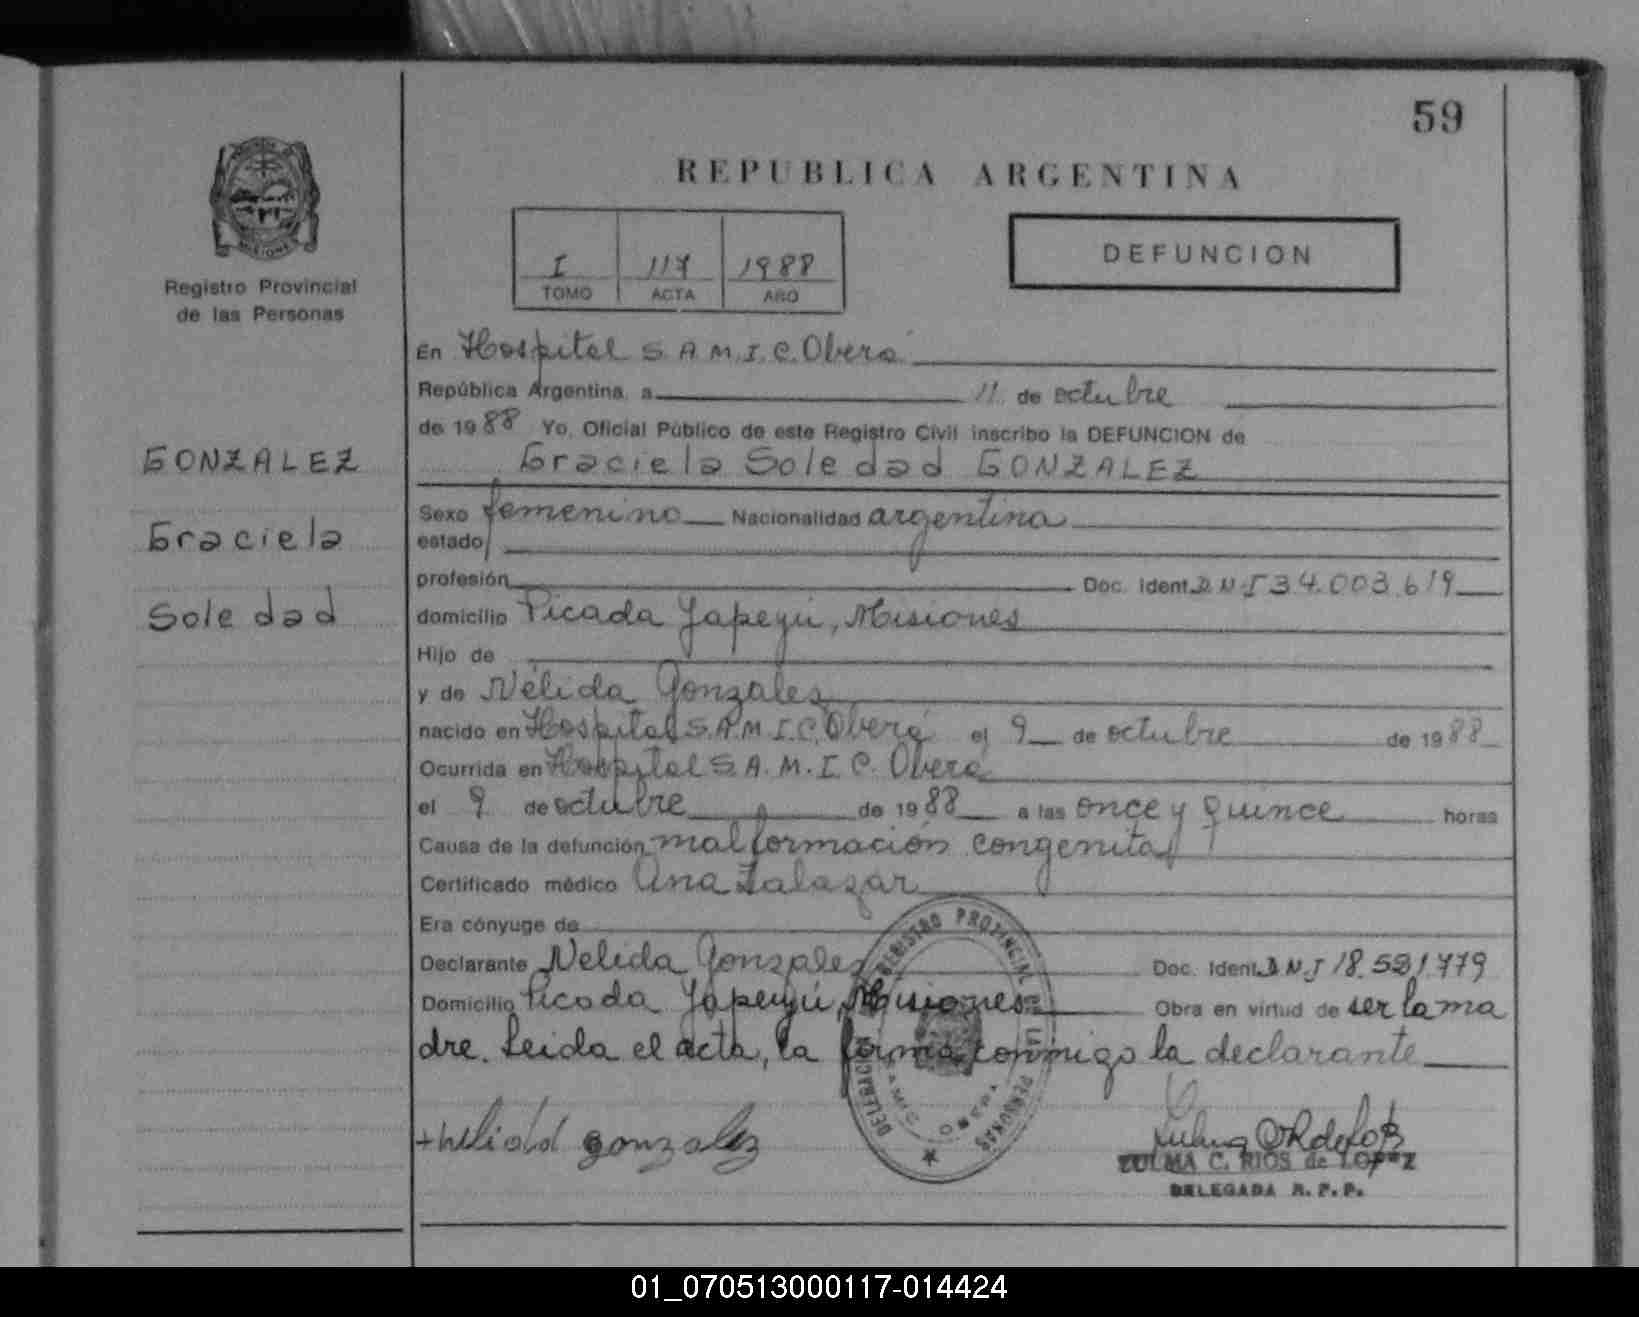 59
REPUBLICA ARGENTINA
MISIONES
Registro Provincial
de las Personas
I 117 1988
TOMO ACTA AÑO
DEFUNCION
GONZALEZ
Graciela
Soledad
En Hospital S.A.M.I.C. Oberá
República Argentina, a 11 de octubre
de 1988 Yo, Oficial Público de este Registro Civil inscribo la DEFUNCION de
Graciela Soledad GONZALEZ
Sexo femenino Nacionalidad argentina
estado
profesión Doc. Ident. D.N.I 34.003.619
domicilio Picada Yapeyú, Misiones
Hijo de
y de Nélida Gonzales
nacido en Hospital S.A.M.I.C. Oberá el 9 de octubre de 1988
Ocurrida en Hospital S.A.M.I.C. Oberá
el 9 de octubre de 1988 a las once y quince horas
Causa de la defunción malformación congenita
Certificado médico Ana Zalazar
Era cónyuge de
Declarante Nelida Gonzales Doc. Ident. D.N.I 18.581.779
Domicilio Picada Yapeyú, Misiones Obra en virtud de ser la ma
dre. Leida el acta, la firma conmigo la declarante
REGISTRO PROVINCIAL DE LAS PERSONAS
DELEGACION
SAMIC OBERA
gonzalez
ZULMA C. RIOS de LOPEZ
DELEGADA R. P. P.
01_070513000117-014424